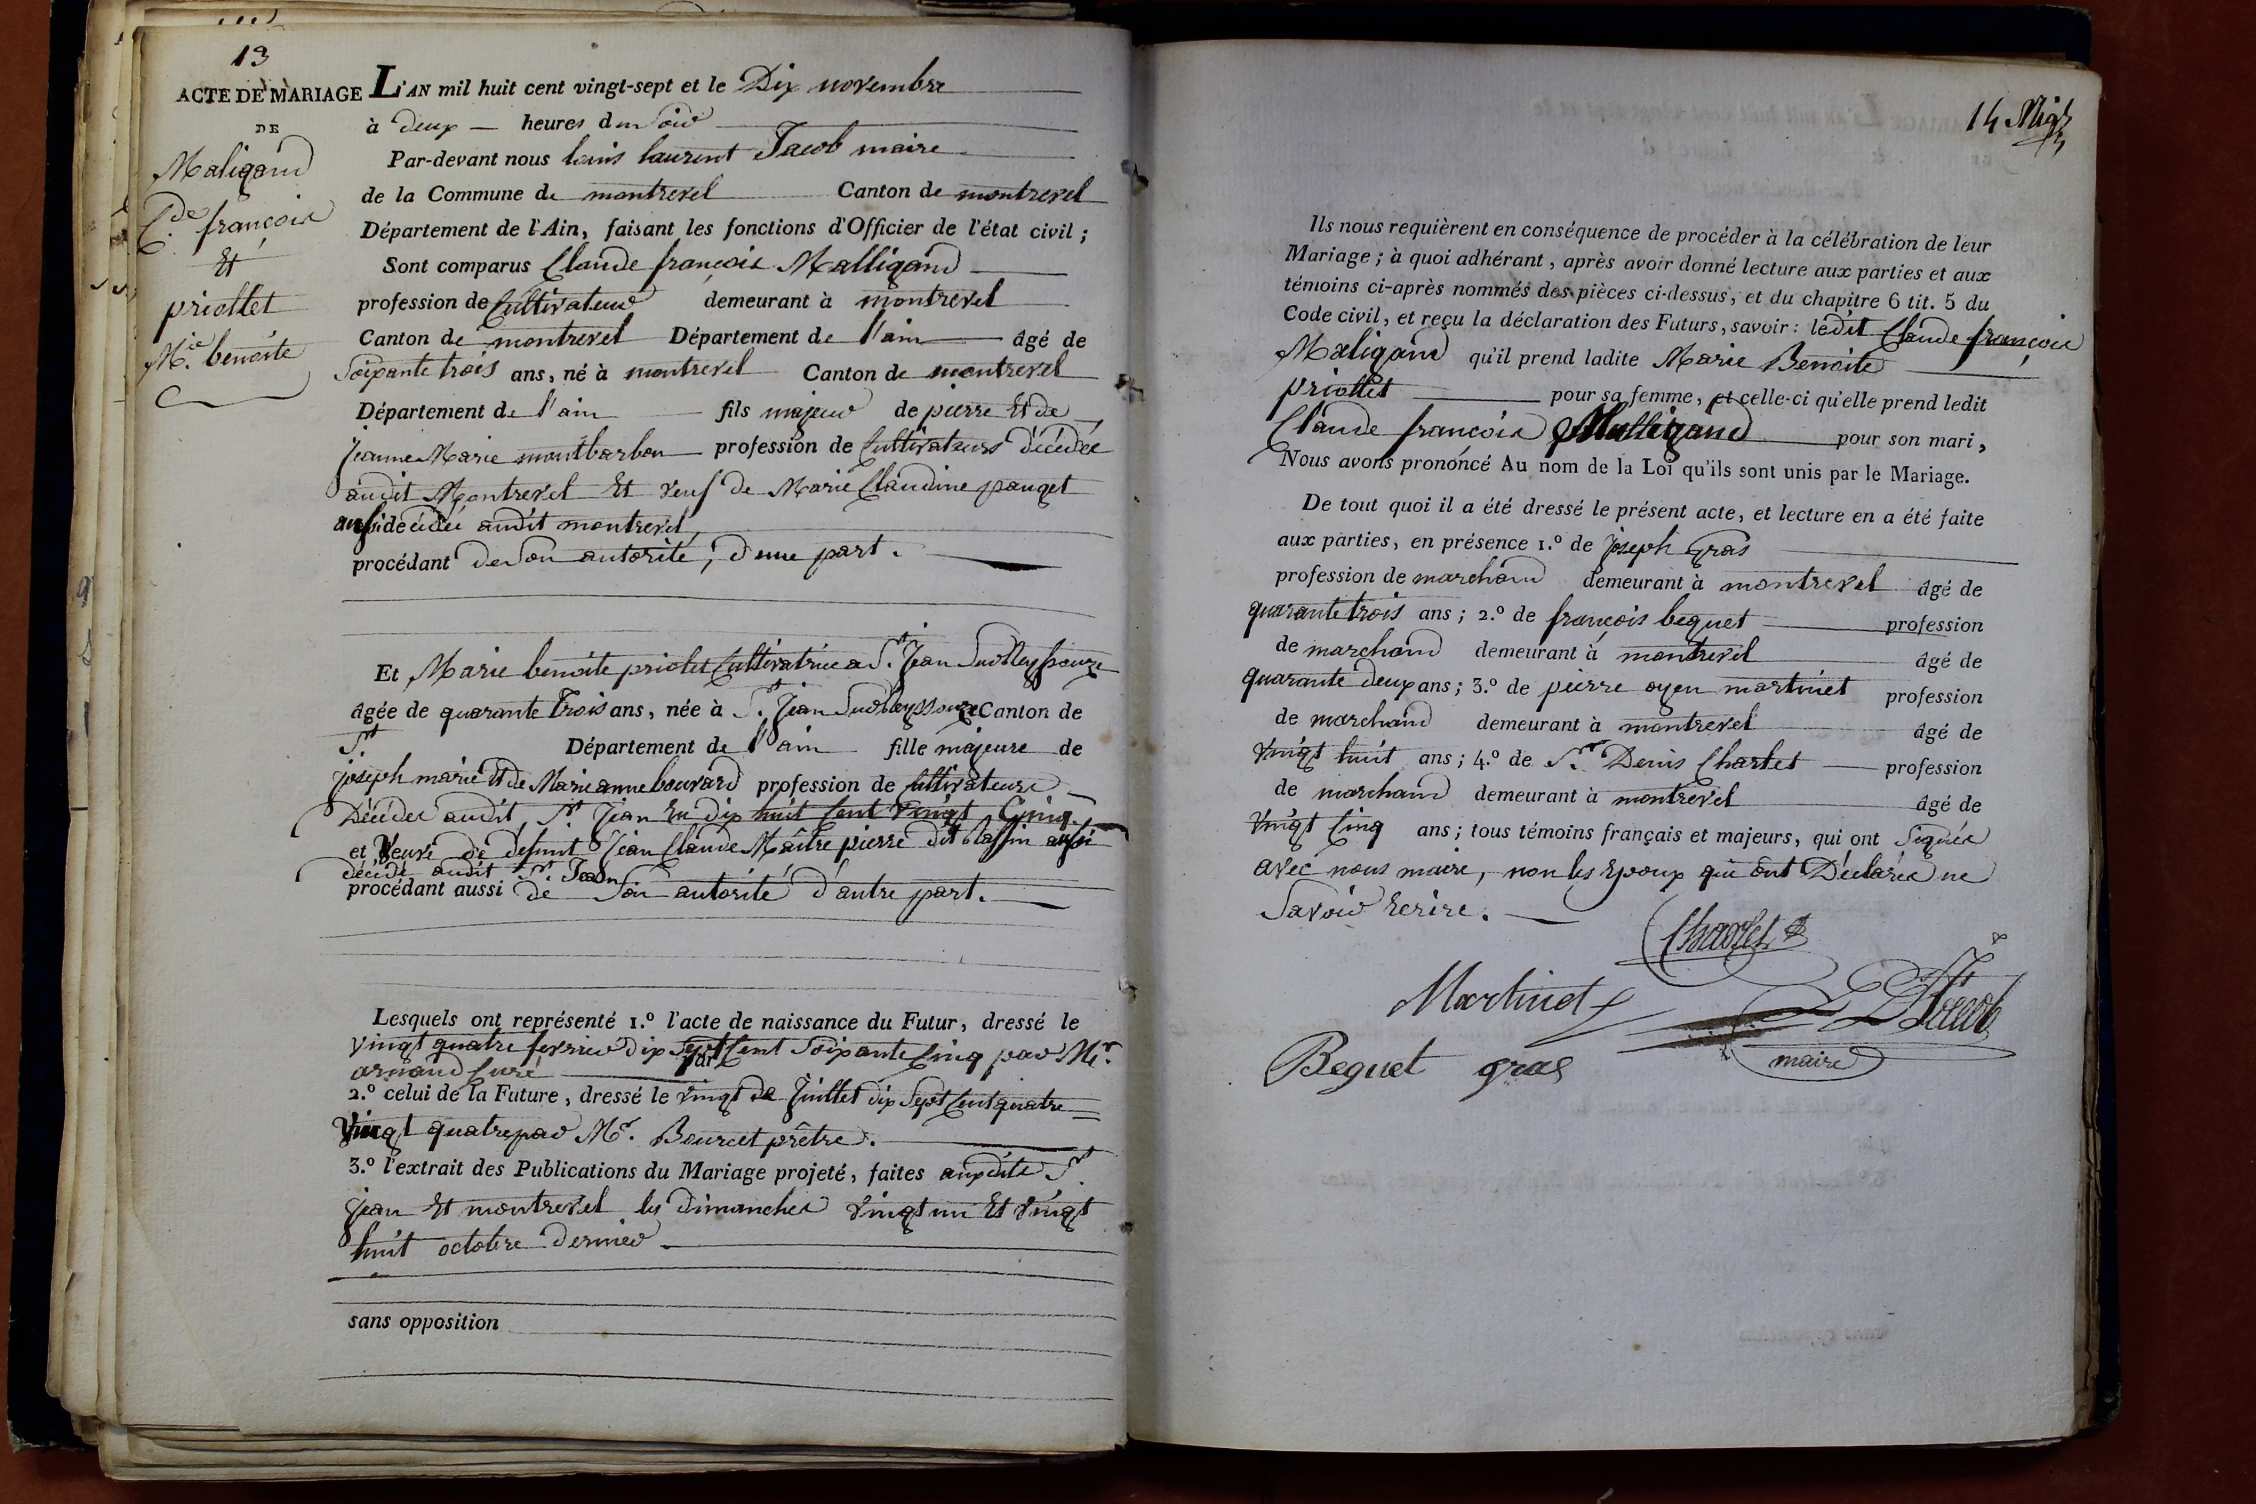 13
ACTE DE MARIAGE
DE
Maligand
C.de françois
Et
priollet
M.ie benoite
L'AN mil huit cent vingt-sept et le Dix novembre
à deux heures du Soir
Par-devant nous louis laurent Jacob maire
de la Commune de montrevel Canton de montrevel
Département de l'Ain, faisant les fonctions d'Officier de l'état civil ;
Sont comparus Claude françois Malligand
profession de Cultivateur demeurant à montrevel
Canton de montrevel Département de l'ain âgé de
Soixante trois ans, né à montrevel Canton de montrevel
Département de l'ain fils majeur de pierre Et de
Jeanne Marie montbarbon profession de Cultivateurs décédés
audit Montrevel Et veuf de Marie Claudine pauget
aussi décédée audit montrevel
procédant de Son autorité, d'une part.
Et Marie benoite priolet Cultivatrice a S.t Jean Sur Reyssouze
âgée de quarante Trois ans, née à S.t Jean Sur Reyssouze Canton de
S.t Département de l'ain fille majeure de
joseph marie Et de Marie anne bouvard profession de Cultivateurs
Décédés audit S.t Jean En dix huit Cent Vingt Cinq
et Veuve de défunt Jean Claude Maître pierre dit blassin aussi
décédé audit S.t Jean
procédant aussi de Son autorité d'autre part.
Lesquels ont représenté 1.º l'acte de naissance du Futur, dressé le
vingt quatre fevrier dix Sept Cent Soixante Cinq par M.r
armand Curé par
2.º celui de la Future, dressé le vingt de Juillet dix Sept Cent quatre
Vingt quatre par M.r Bourcet prêtre.
3.º l'extrait des Publications du Mariage projeté, faites auxdits S.t
Jean Et montrevel les Dimanches vingt un Et vingt
huit octobre dernier
sans opposition
14
Ils nous requièrent en conséquence de procéder à la célébration de leur
Mariage ; à quoi adhérant, après avoir donné lecture aux parties et aux
témoins ci-après nommés des pièces ci-dessus, et du chapitre 6 tit. 5 du
Code civil, et reçu la déclaration des Futurs, savoir : ledit Claude françois
Maligand qu'il prend ladite Marie Benoite
priollet pour sa femme, et celle-ci qu'elle prend ledit
Claude françois Malligand pour son mari,
Nous avons prononcé Au nom de la Loi qu'ils sont unis par le Mariage.
De tout quoi il a été dressé le présent acte, et lecture en a été faite
aux parties, en présence 1.º de Joseph Gras
profession de marchand demeurant à montrevel âgé de
quarante trois ans ; 2.º de françois beguet profession
de marchand demeurant à montrevel âgé de
quarante deux ans ; 3.º de pierre oyen martinet profession
de marchand demeurant à montrevel âgé de
vingt huit ans ; 4.º de S.r Denis Charlet profession
de marchand demeurant à montrevel âgé de
vingt Cinq ans ; tous témoins français et majeurs, qui ont Signés
avec nous maire, non les Epoux qui ont Déclarés ne
Savoir Ecrire.
Charlet
Martinet
Jacob
Beguet gras
maire